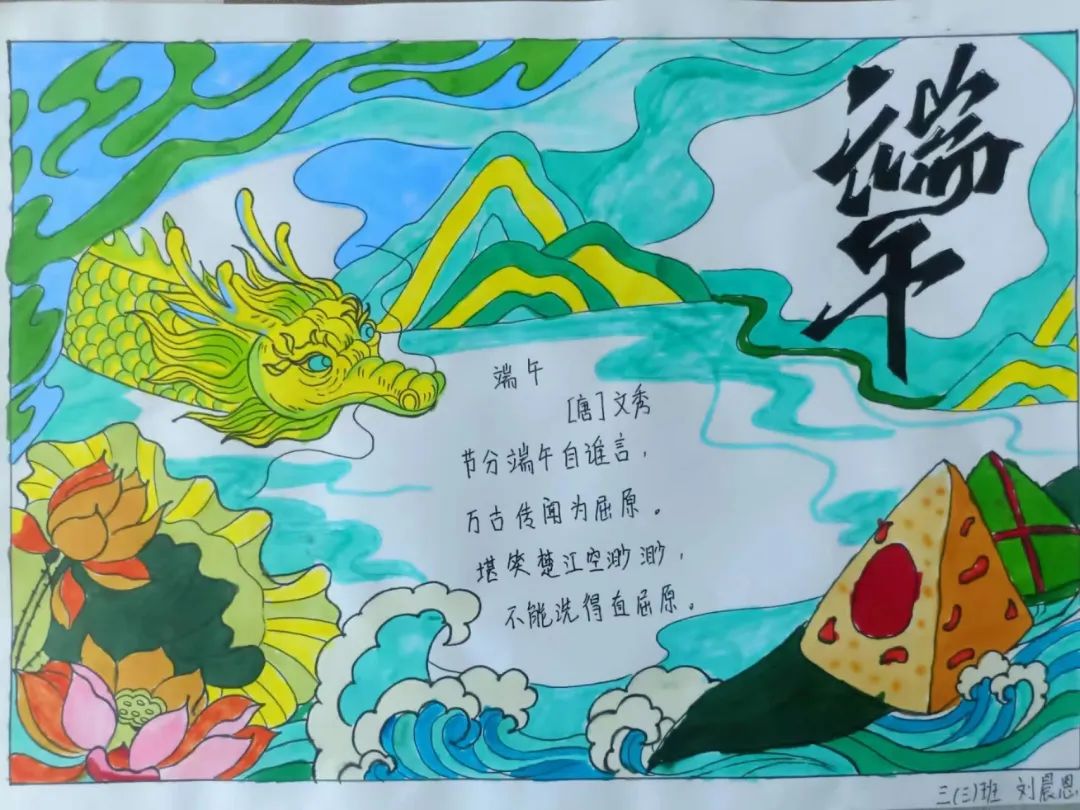 端午
端午
[唐]文秀
节分端午自谁言，
万古传闻为屈原。
堪笑楚江空渺渺，
不能洗得直屈原。
三(三)班 刘晨恩